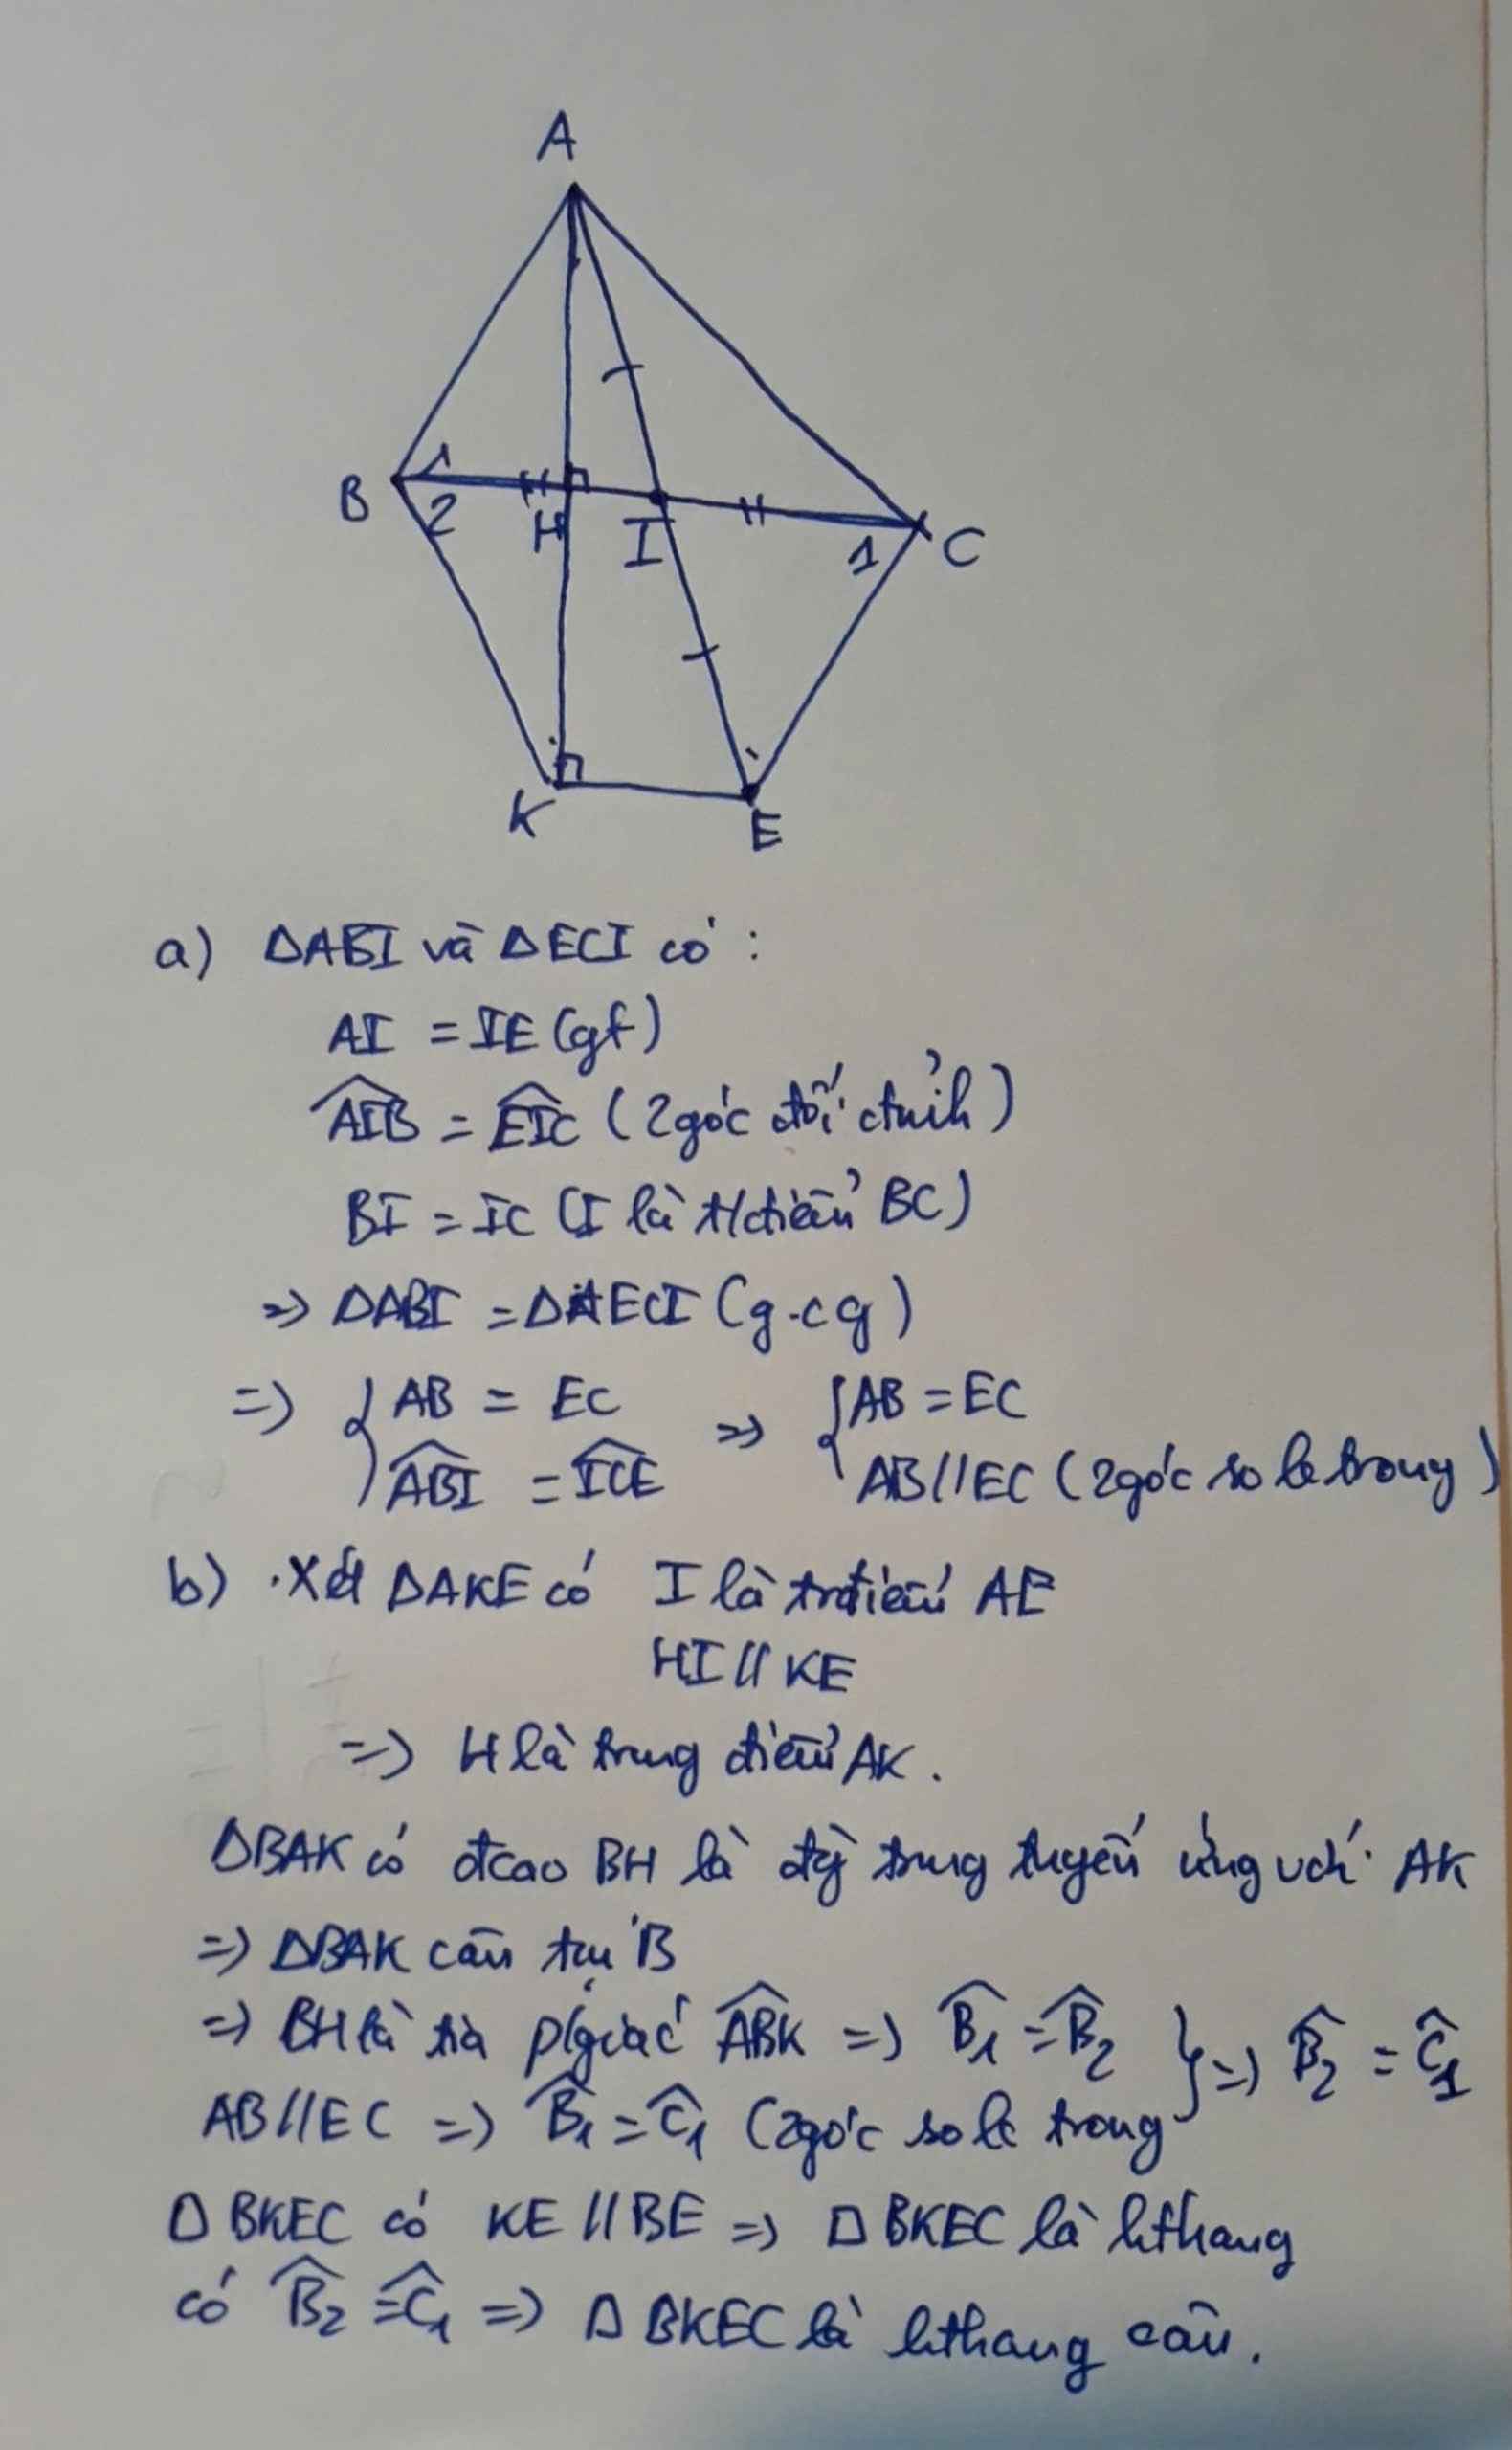 A
B
1
2
H
I
1
C
K
E
a) ΔABI và ΔECI có :
AI = IE (gt)
\widehat{AIB} = \widehat{EIC} (2góc đối đỉnh)
BI = IC (I là t/điểm BC)
=> ΔABI = ΔECI (g.cg)
=> { AB = EC => { AB = EC
\widehat{ABI} = \widehat{ICE} AB//EC (2góc so le trong)
b) . Xét ΔAKE có I là trđiểm AE
HI // KE
=> H là trung điểm AK .
ΔBAK có đcao BH là đg trung tuyến ứng với AK
=> ΔBAK cân tại B
=> BH là tia p/giác \widehat{ABK} => \widehat{B}₁ = \widehat{B}₂ } => \widehat{B}₂ = \widehat{C}₁
AB//EC => \widehat{B}₁ = \widehat{C}₁ (2góc so le trong
BKEC có KE // BE => BKEC là hthang
có \widehat{B}₂ = \widehat{C}₁ => BKEC là hthang cân .